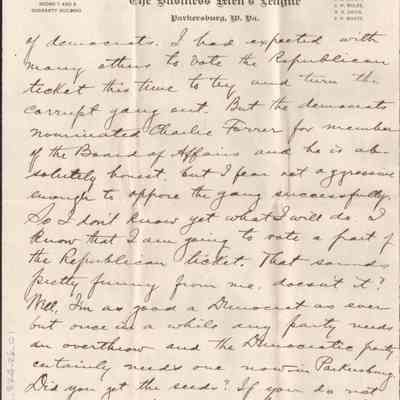 The Business Men's League
Parkersburg, W. Va.
of democrats. I had expected with
many others to vote the Republican
ticket this time to try and turn the
corrupt gang out. But the democrats
nominated Charlie Farrer for member
of the Board of Affairs and he is ab-
solutely honest, but I fear not aggressive
enough to oppose the gang successfully.
So I don't know yet what I will do. I
know that I am going to vote a part of
the Republican ticket. That sounds
pretty funny from me, doesn't it?
Well, I'm as good a Democrat as ever
but once in a while any party needs
an overthrow and the Democratic party
certainly needs one now in Parkersburg.
Did you get the seeds? If you do not